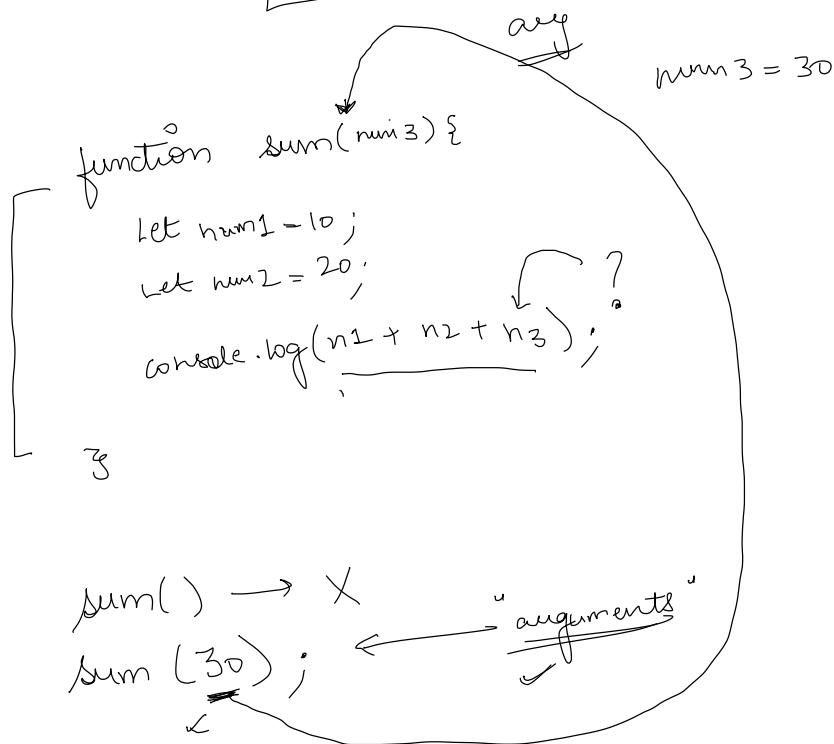 arg
num3 = 30
function sum(num3) {
Let num1 = 10;
Let num2 = 20;
?
console.log(n1 + n2 + n3);
}
sum() → X
sum (30); ← "auguments"